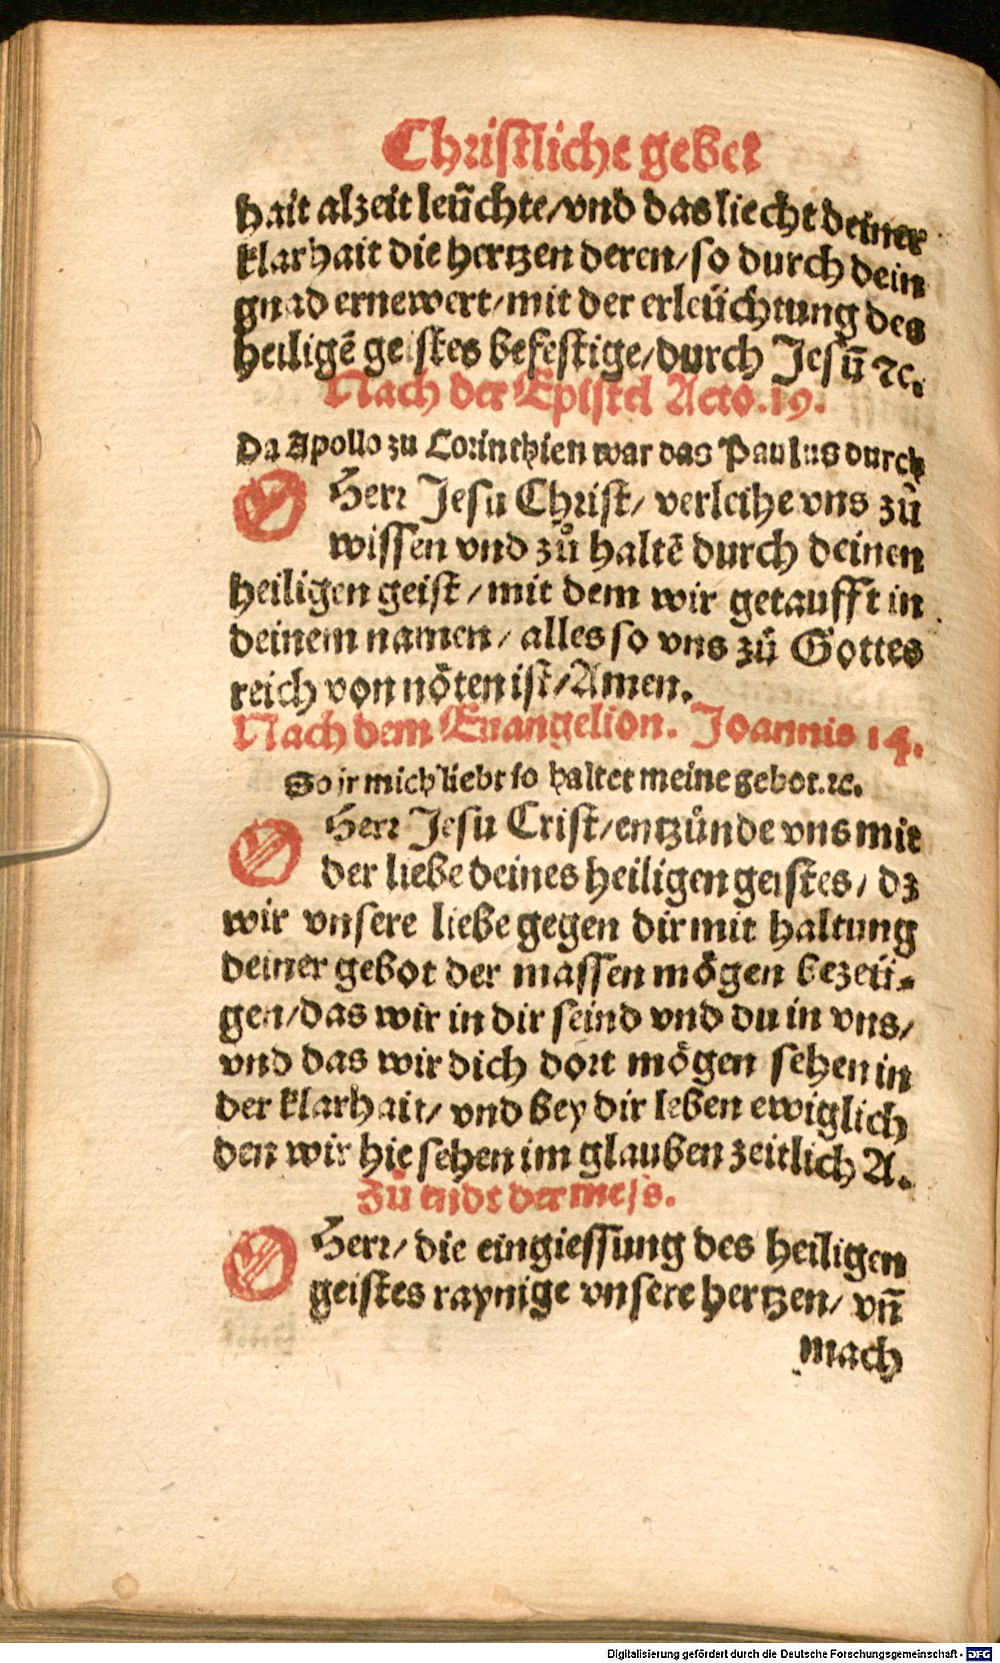 Christliche gebet
hait alzeit leüchte/vnd das liecht deiner
klarhait die hertzen deren/so durch dein
gnad ernewert/mit der erleüchtung des
heiligē geistes befestige/durch Jesū ꝛc.
Nach der Epistel Acto.19.
Da Apollo zu Corinthien war das Paulus durch
O Herr Jesu Christ/ verleihe vns zů
wissen vnd zů haltē durch deinen
heiligen geist/mit dem wir getaufft in
deinem namen/ alles so vns zů Gottes
reich von nöten ist/Amen.
Nach dem Euangelion. Joannis 14.
So jr mich liebt so haltet meine gebot.ꝛc.
O Herr Jesu Crist/entzünde vns mit
der liebe deines heiligen geistes/ dz
wir vnsere liebe gegen dir mit haltung
deiner gebot der massen mögen bezeü-
gen/das wir in dir seind vnd du in vns/
vnd das wir dich dort mögen sehen in
der klarhait/ vnd bey dir leben ewiglich
den wir hie sehen im glauben zeitlich A.
Zů ende der mess.
O Herr/ die eingiessung des heiligen
geistes raynige vnsere hertzen/ vn̄
mach
Digitalisierung gefördert durch die Deutsche Forschungsgemeinschaft - DFG